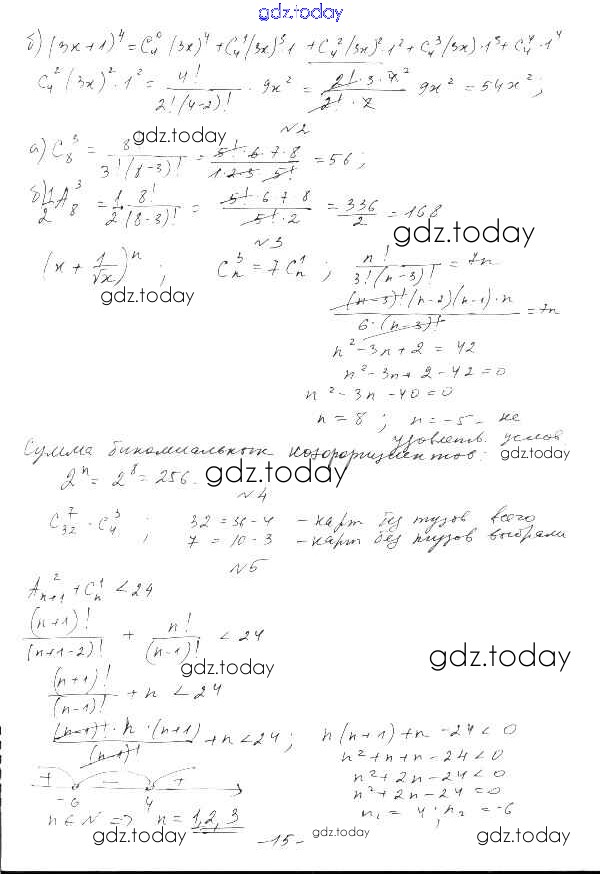 gdz.today
б) (3x+1)⁴ = C₄⁰(3x)⁴ + C₄¹(3x)³·1 + C₄²(3x)²·1² + C₄³(3x)·1³ + C₄⁴·1⁴
C₄²(3x)²·1² = 4!/(2!(4-2)!) · 9x² = (2!·3·4²)/(2!·2) 9x² = 54x²;
gdz.today
N2
а) C₈³ = 8/(3!(8-3)!) = (5!·6·7·8)/(1·2·3·5!) = 56;
gdz.today
б) 1/2 A₈³ = 1/2 · 8!/(8-3)! = (5!·6 7 8)/(5!·2) = 336/2 = 168
gdz.today
N3
(x + 1/√x)ⁿ ; Cₙ³ = 7Cₙ¹ ; n!/(3!(n-3)!) = 7n
gdz.today
((n-3)!(n-2)(n-1)·n)/(6·(n-3)!) = 7n
n²-3n+2 = 42
n²-3n+2-42=0
n²-3n-40=0
n=8; n=-5 - не
удовлетв. услов
Сумма биномиальных коэффициентов:
gdz.today
2ⁿ = 2⁸ = 256.
gdz.today
N4
C₃₂⁷ · C₄³ ; 32 = 36-4 - карт без тузов всего
7 = 10-3 - карт без тузов выбрали
N5
Aₙ₊₁² + Cₙ¹ < 24
(n+1)!/(n+1-2)! + n!/(n-1)! < 24
gdz.today
gdz.today
(n+1)!/(n-1)! + n < 24
((n-1)!·n·(n+1))/(n-1)! + n < 24; n(n+1)+n-24<0
n²+n+n-24<0
+ - +
n²+2n-24<0
-6 4
n²+2n-24=0
n₁ = 4; n₂ = -6
n∈N => n = 1,2,3
gdz.today
-15-
gdz.today
gdz.today